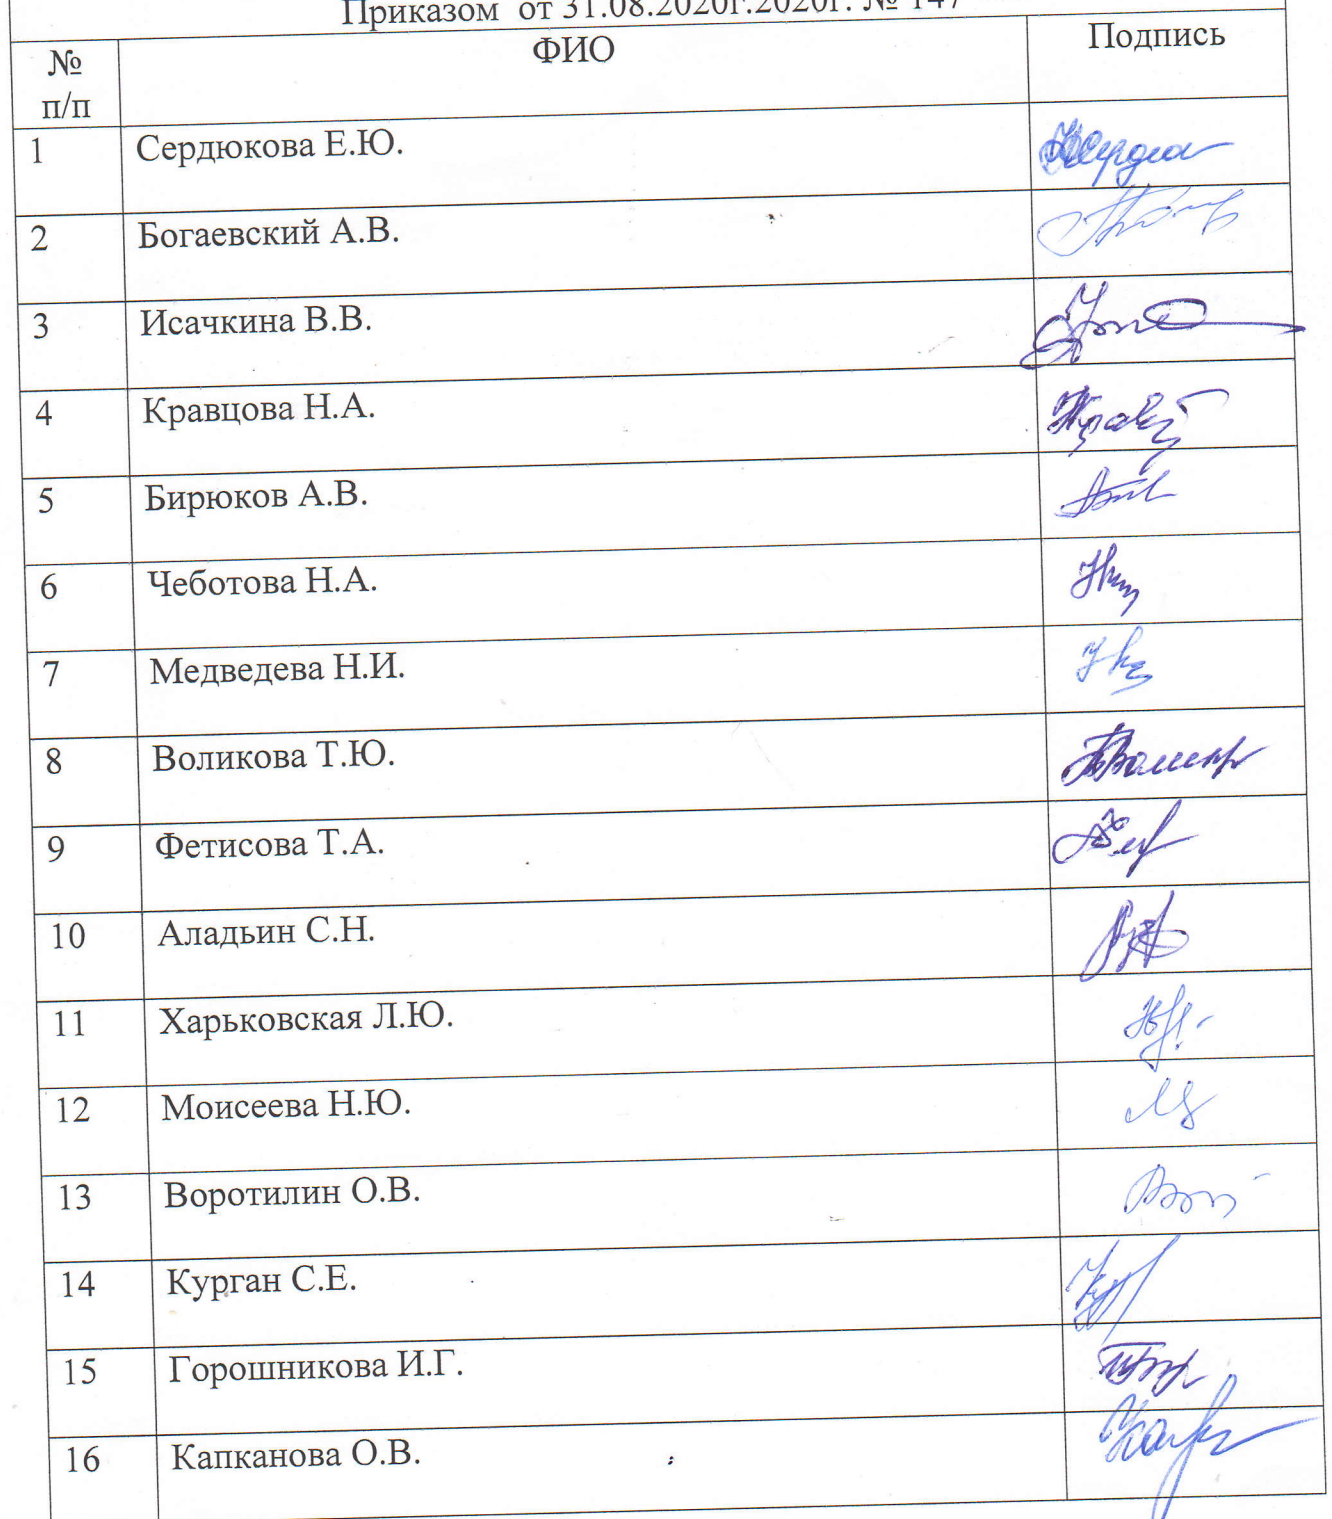 Приказом от 31.08.2020г.2020г. № 147
№ п/п ФИО Подпись
1 Сердюкова Е.Ю.
2 Богаевский А.В.
3 Исачкина В.В.
4 Кравцова Н.А.
5 Бирюков А.В.
6 Чеботова Н.А.
7 Медведева Н.И.
8 Воликова Т.Ю.
9 Фетисова Т.А.
10 Аладьин С.Н.
11 Харьковская Л.Ю.
12 Моисеева Н.Ю.
13 Воротилин О.В.
14 Курган С.Е.
15 Горошникова И.Г.
16 Капканова О.В.